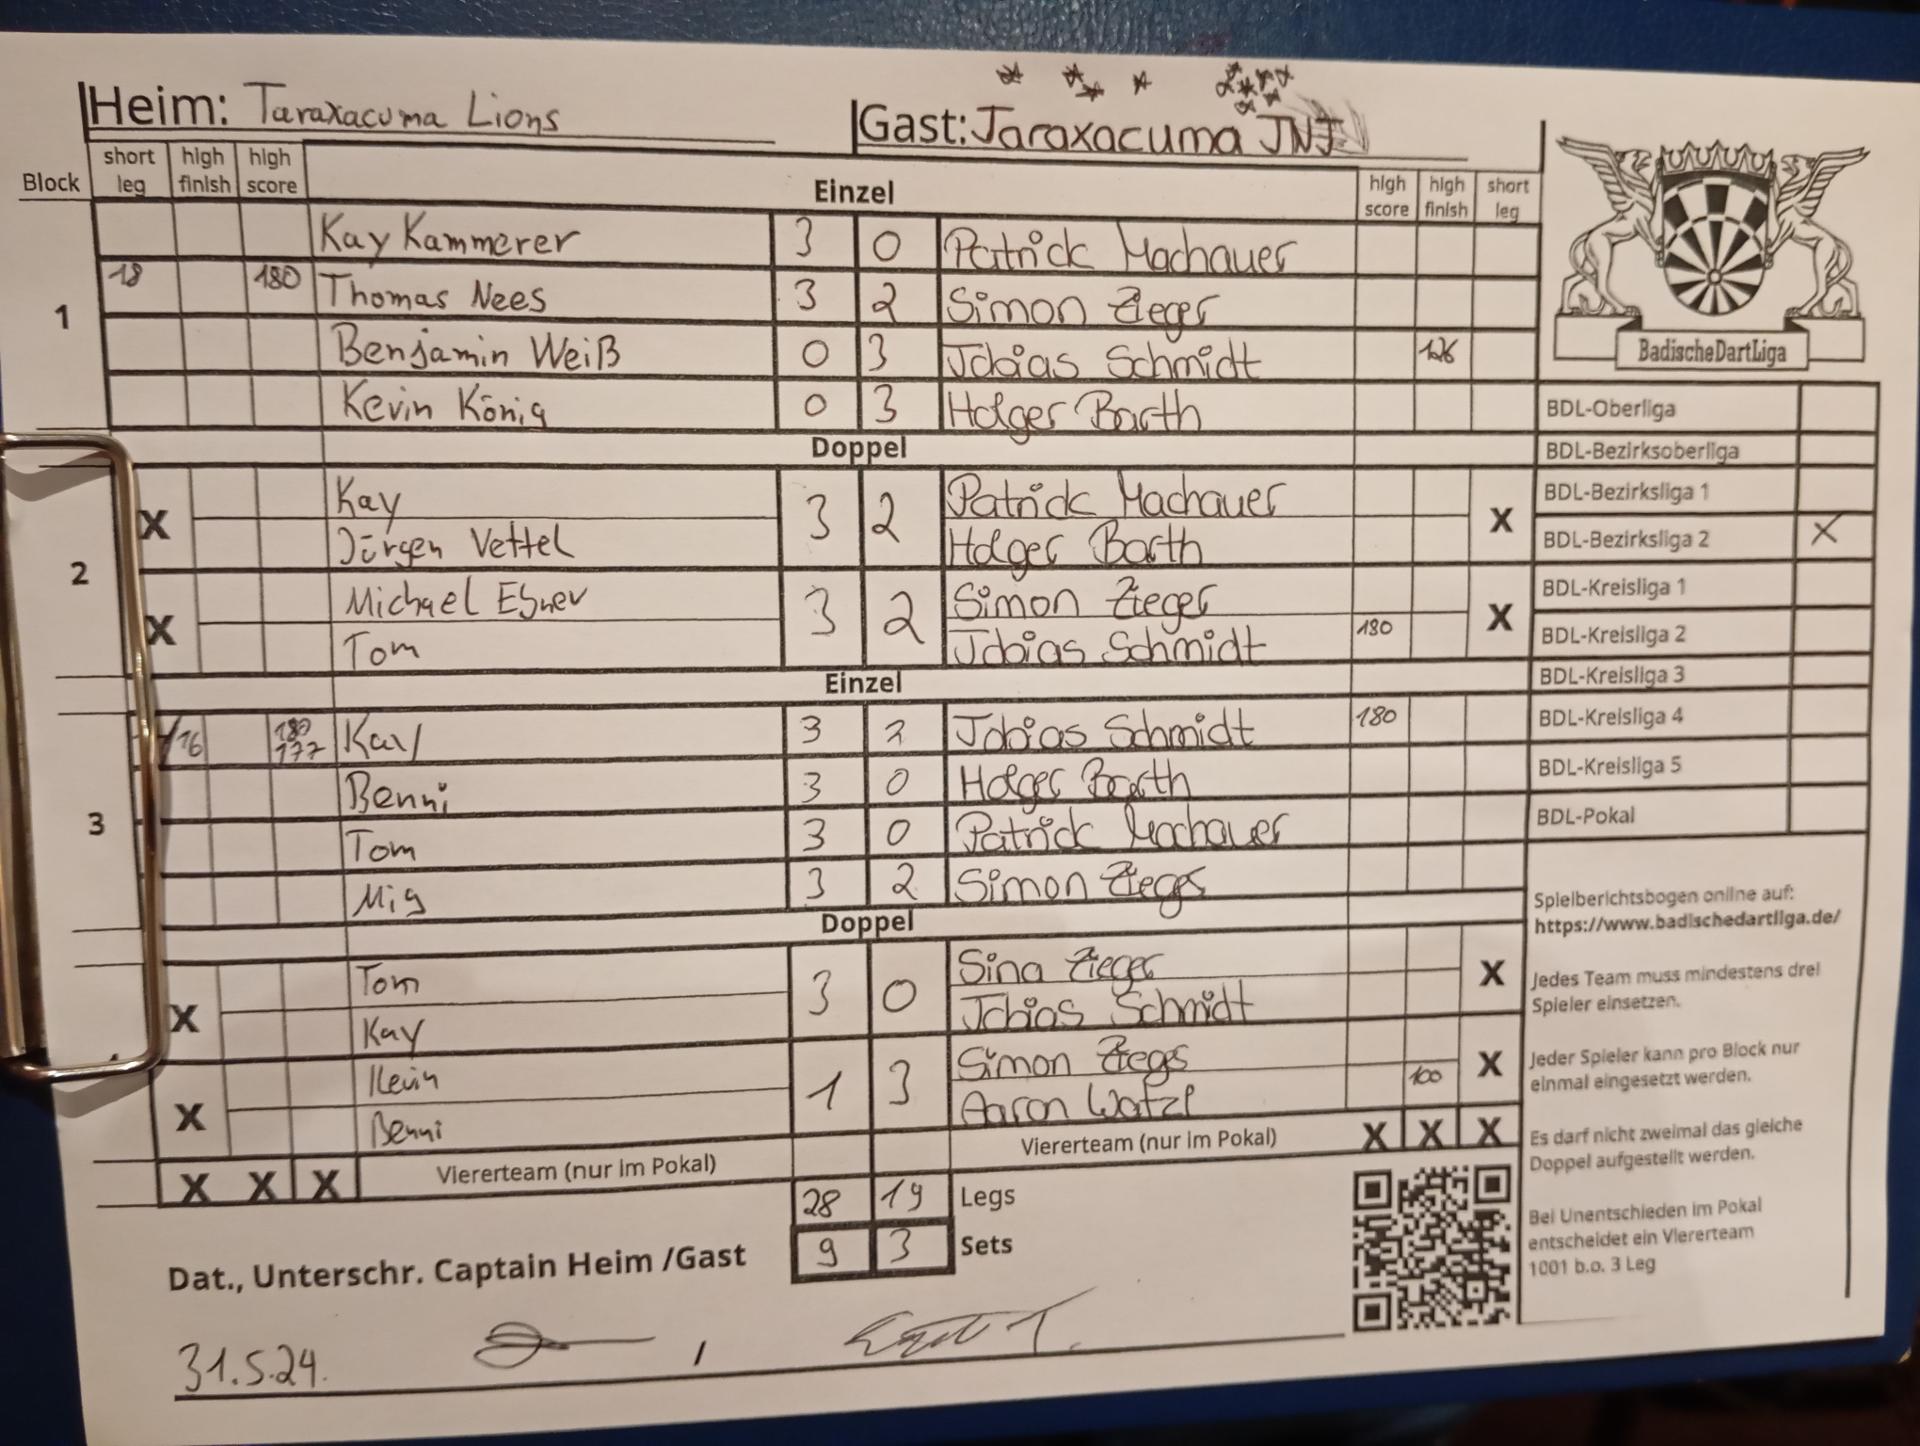 Heim: Taraxacuma Lions
Gast: Taraxacuma JNJ
Block short leg high finish high score Einzel high score high finish short leg
1
Kay Kammerer 3 0 Patrick Machauer
18 180 Thomas Nees 3 2 Simon Zieger
Benjamin Weiß 0 3 Tobias Schmidt 126
Kevin König 0 3 Holger Barth
Doppel
2
X Kay 3 2 Patrick Machauer X
Jürgen Vettel Holger Barth
X Michael Ebner 3 2 Simon Zieger X
Tom Tobias Schmidt 180
Einzel
3
16 180 177 Kay 3 2 Tobias Schmidt 180
Benni 3 0 Holger Barth
Tom 3 0 Patrick Machauer
3 2 Simon Zieger
Doppel
X Tom 3 0 Sina Zieger X
Kay Tobias Schmidt
X Kevin 1 3 Simon Zieger X
Benni Aaron Watzl 100
X X X Viererteam (nur im Pokal) Viererteam (nur im Pokal) X X X
28 19 Legs
9 3 Sets
Dat., Unterschr. Captain Heim /Gast
31.5.24. /
BadischeDartLiga
BDL-Oberliga
BDL-Bezirksoberliga
BDL-Bezirksliga 1
BDL-Bezirksliga 2 X
BDL-Kreisliga 1
BDL-Kreisliga 2
BDL-Kreisliga 3
BDL-Kreisliga 4
BDL-Kreisliga 5
BDL-Pokal
Spielberichtsbogen online auf:
https://www.badischedartliga.de/
Jedes Team muss mindestens drei
Spieler einsetzen.
Jeder Spieler kann pro Block nur
einmal eingesetzt werden.
Es darf nicht zweimal das gleiche
Doppel aufgestellt werden.
Bei Unentschieden im Pokal
entscheidet ein Viererteam
1001 b.o. 3 Leg